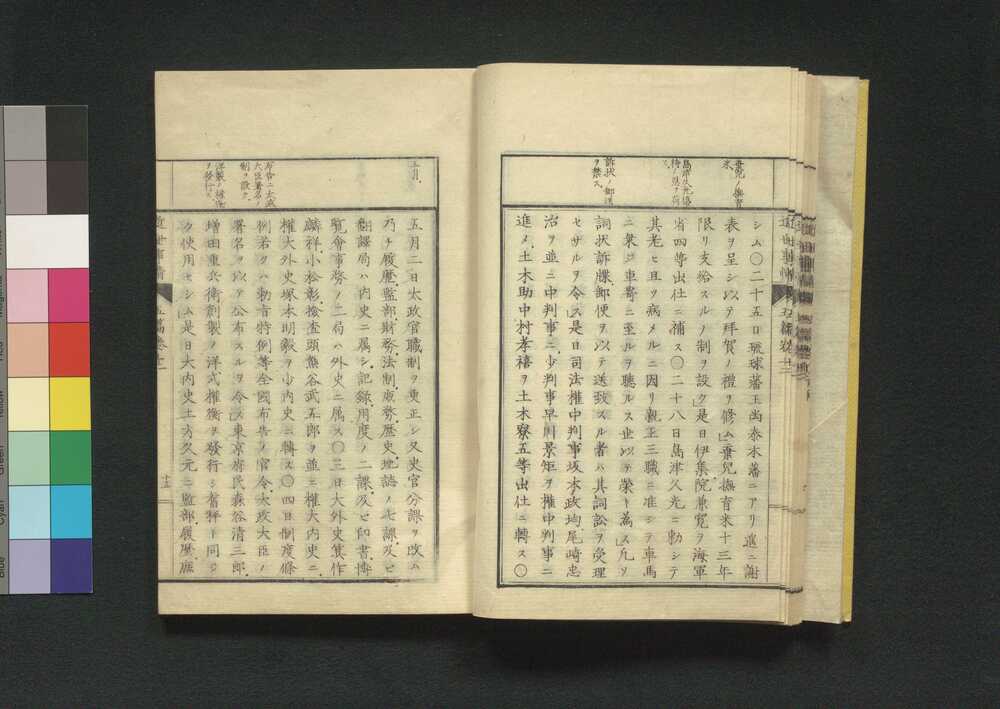 棄児ノ撫育
米
島津久光優
待ノ恩ヲ荷
フ
訴状ノ郵送
ヲ禁ス
シム〇二十五日琉球藩王尚泰本藩ニアリ進ニ謝
表ヲ呈シ以テ拝賀ノ禮ヲ修ム棄兒撫育米十三年
限リ支給スルノ制ヲ設ク是日伊集院兼寛ヲ海軍
省四等出仕ニ補ス〇二十八日島津久光ニ勅シテ
其老ヒ且ツ病メルニ因リ親王三職ニ准シテ車馬
ニ乗シ車寄ニ至ルヲ聴ルス世以テ榮ト為ス凡ソ
詞状訴牒郵便ヲ以テ送致スル者ハ其詞訟ヲ受理
セサルヲ令ス是日司法權中判事坂本政均尾崎忠
治ヲ並ニ中判事ニ少判事早川景矩ヲ權中判事ニ
進メ土木助中村孝禧ヲ土木寮五等出仕ニ轉ス〇
五月
布告ニ太政
大臣署名ノ
制ヲ設ク
洋製ノ權衡
ヲ發行ス
五月二日太政官職制ヲ更正シ又史官分課ヲ改ム
乃チ履歴監部財務法制版務歴史地誌ノ七課及ヒ
翻譯局ハ内史ニ属シ記録用度ノ二課及ヒ印書博
覽會事務ノ二局ハ外史ニ属ス〇三日大外史箕作
麟祥小松彰檢査頭熊谷武五郎ヲ並ニ權大内史ニ
權大外史塚本明毅ヲ少内史ニ轉ス〇四日制度條
例若クハ勅旨特例等全國布告ノ官令太政大臣ノ
署名ヲ以テ公布スルヲ令ス東京府民森谷清三郎
増田重兵衛創製ノ洋式權衡ヲ發行シ舊秤ト同シ
ク使用セシム是日大内史土方久元ニ監部履歴
近世事情 五篇卷十二
十五